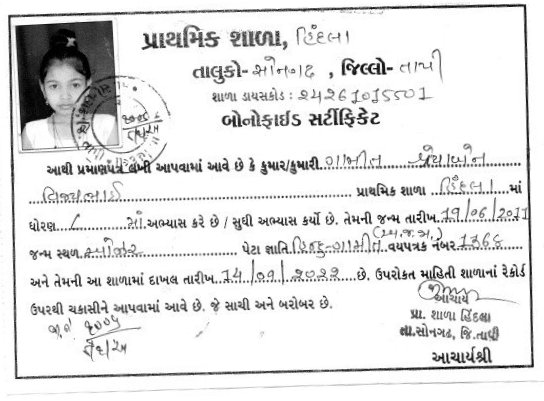 પ્રાથમિક શાળા, હિંદલા
તાલુકો-સોનગઢ , જિલ્લો-તાપી
શાળા ડાયસકોડ : 24261015501
બોનોફાઈડ સર્ટીફિકેટ
આથી પ્રમાણપત્ર લખી આપવામાં આવે છે કે કુમાર/કુમારી ગામીત શ્રેયાબેન
વિજયભાઈ પ્રાથમિક શાળા હિંદલા માં
ધોરણ માં અભ્યાસ કરે છે / સુધી અભ્યાસ કર્યો છે. તેમની જન્મ તારીખ 19/06/2011
(અ.જ.જા.)
જન્મ સ્થળ પેટા જ્ઞાતિ હિન્દુ-ગામીત વયપત્રક નંબર 1368
અને તેમની આ શાળામાં દાખલ તારીખ 14/09/2022 છે. ઉપરોકત માહિતી શાળાનાં રેકોર્ડ
ઉપરથી ચકાસીને આપવામાં આવે છે. જે સાચી અને બરોબર છે.
આચાર્ય
પ્રા. શાળા હિંદલા
તા.સોનગઢ, જિ.તાપી
આચાર્યશ્રી